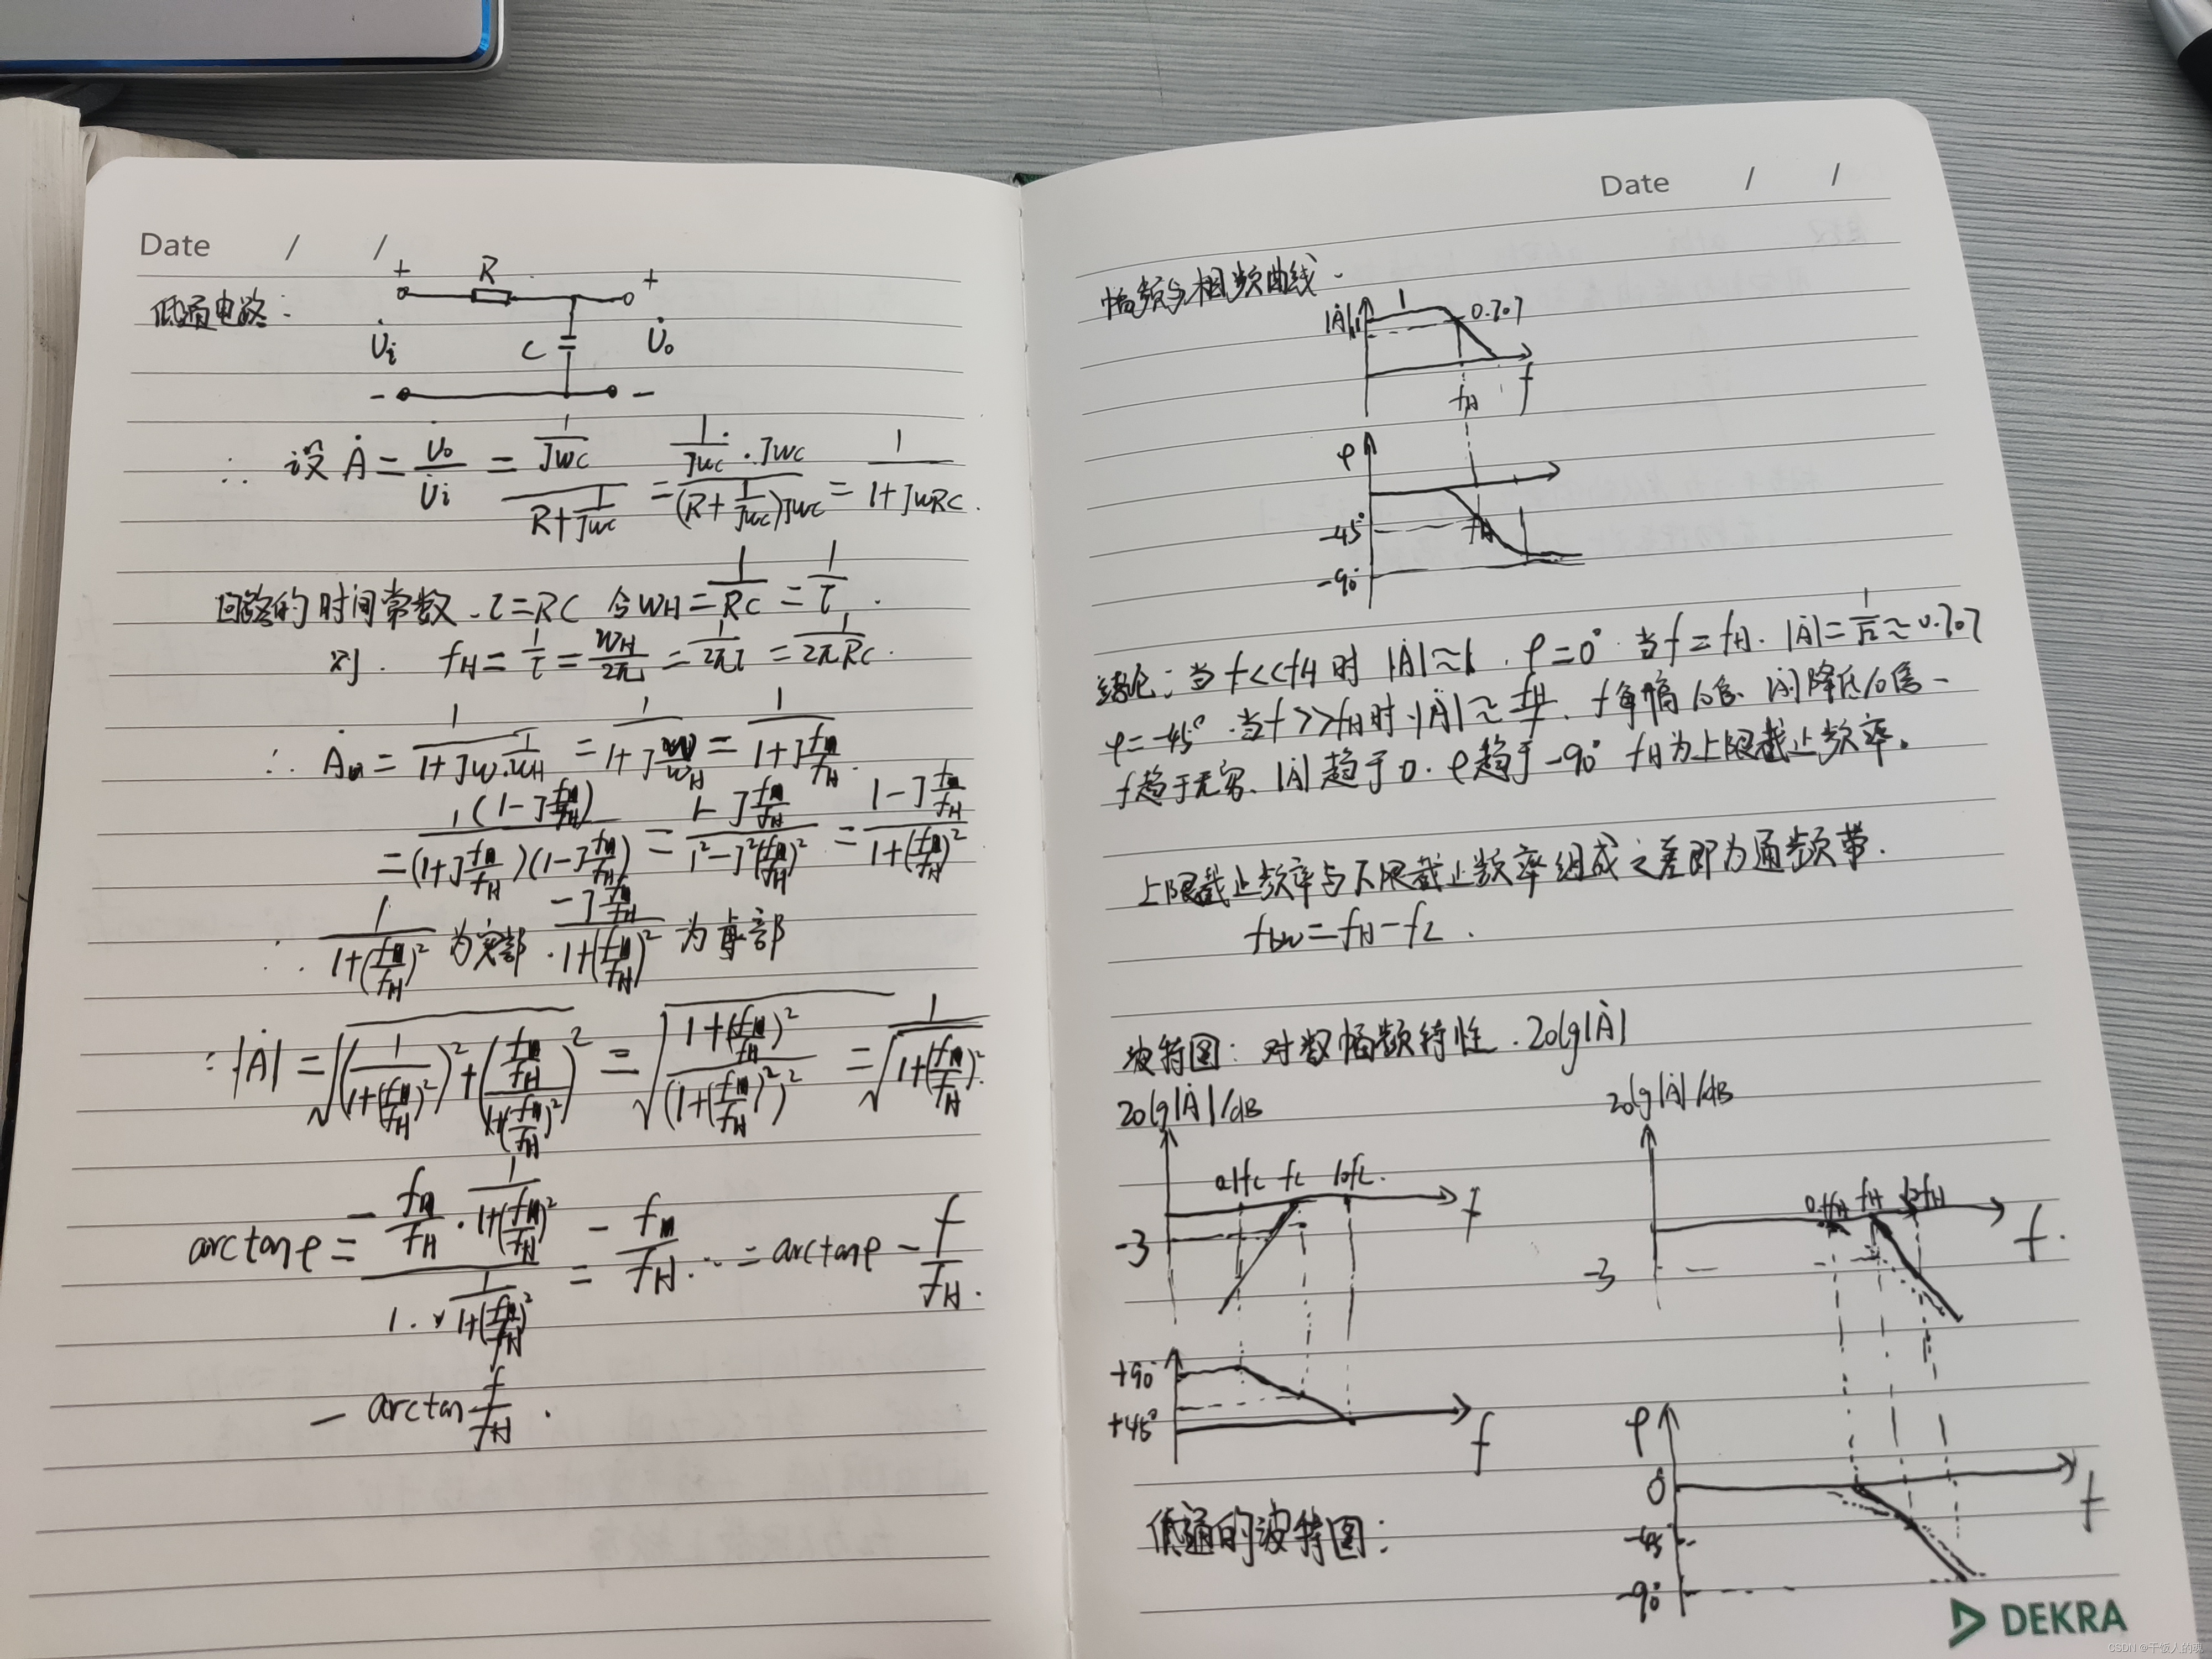 Date / /
低通电路:
+ R +
U̇i C U̇o
- -
∴ 设 Ȧ = U̇o/U̇i = (1/jwc)/(R+1/jwc) = (1/jwc · jwc)/((R+1/jwc)jwc) = 1/(1+jwRC).
回路的时间常数 τ=RC 令 wH = 1/RC = 1/τ.
则. fH = 1/τ = wH/2π = 1/2πτ = 1/2πRC.
∴ Ȧ = 1/(1+jw·1/wH) = 1/(1+j w/wH) = 1/(1+j f/fH).
= 1(1-j f/fH)/((1+j f/fH)(1-j f/fH)) = (1-j f/fH)/(1²-j²(f/fH)²) = (1-j f/fH)/(1+(f/fH)²)
∴ 1/(1+(f/fH)²) 为实部 · (-j f/fH)/(1+(f/fH)²) 为虚部
∴ |Ȧ| = √((1/(1+(f/fH)²))²+((f/fH)/(1+(f/fH)²))²) = √((1+(f/fH)²)/(1+(f/fH)²)²) = 1/√(1+(f/fH)²).
arctanφ = (-f/fH · 1/(1+(f/fH)²))/(1·1/(1+(f/fH)²)) = -f/fH ∴ = arctanφ - f/fH.
- arctan f/fH.
Date / /
幅频与相频曲线.
|Ȧ| 1 0.707
fH f
φ
-45° fH
-90°
结论: 当 f<<fH 时 |Ȧ|≈1. φ=0° 当 f=fH. |Ȧ|=1/√2≈0.707
φ=-45°. 当f>>fH时.|Ȧ|≈fH/f. f每幅10倍. |Ȧ|降低10倍-
f趋于无穷. |Ȧ|趋于0. φ趋于-90° fH为上限截止频率.
上限截止频率与下限截止频率组成之差即为通频带.
fbw=fH-fL.
波特图: 对数幅频特性. 20lg|Ȧ|
20lg|Ȧ|/dB 20lg|Ȧ|/dB
0.1fL fL 10fL. f
-3
0.1fH fH 10fH f.
-3
+90°
+45°
f
低通的波特图:
φ
0
f
-45°
-90°
DEKRA
CSDN @干饭人的魂